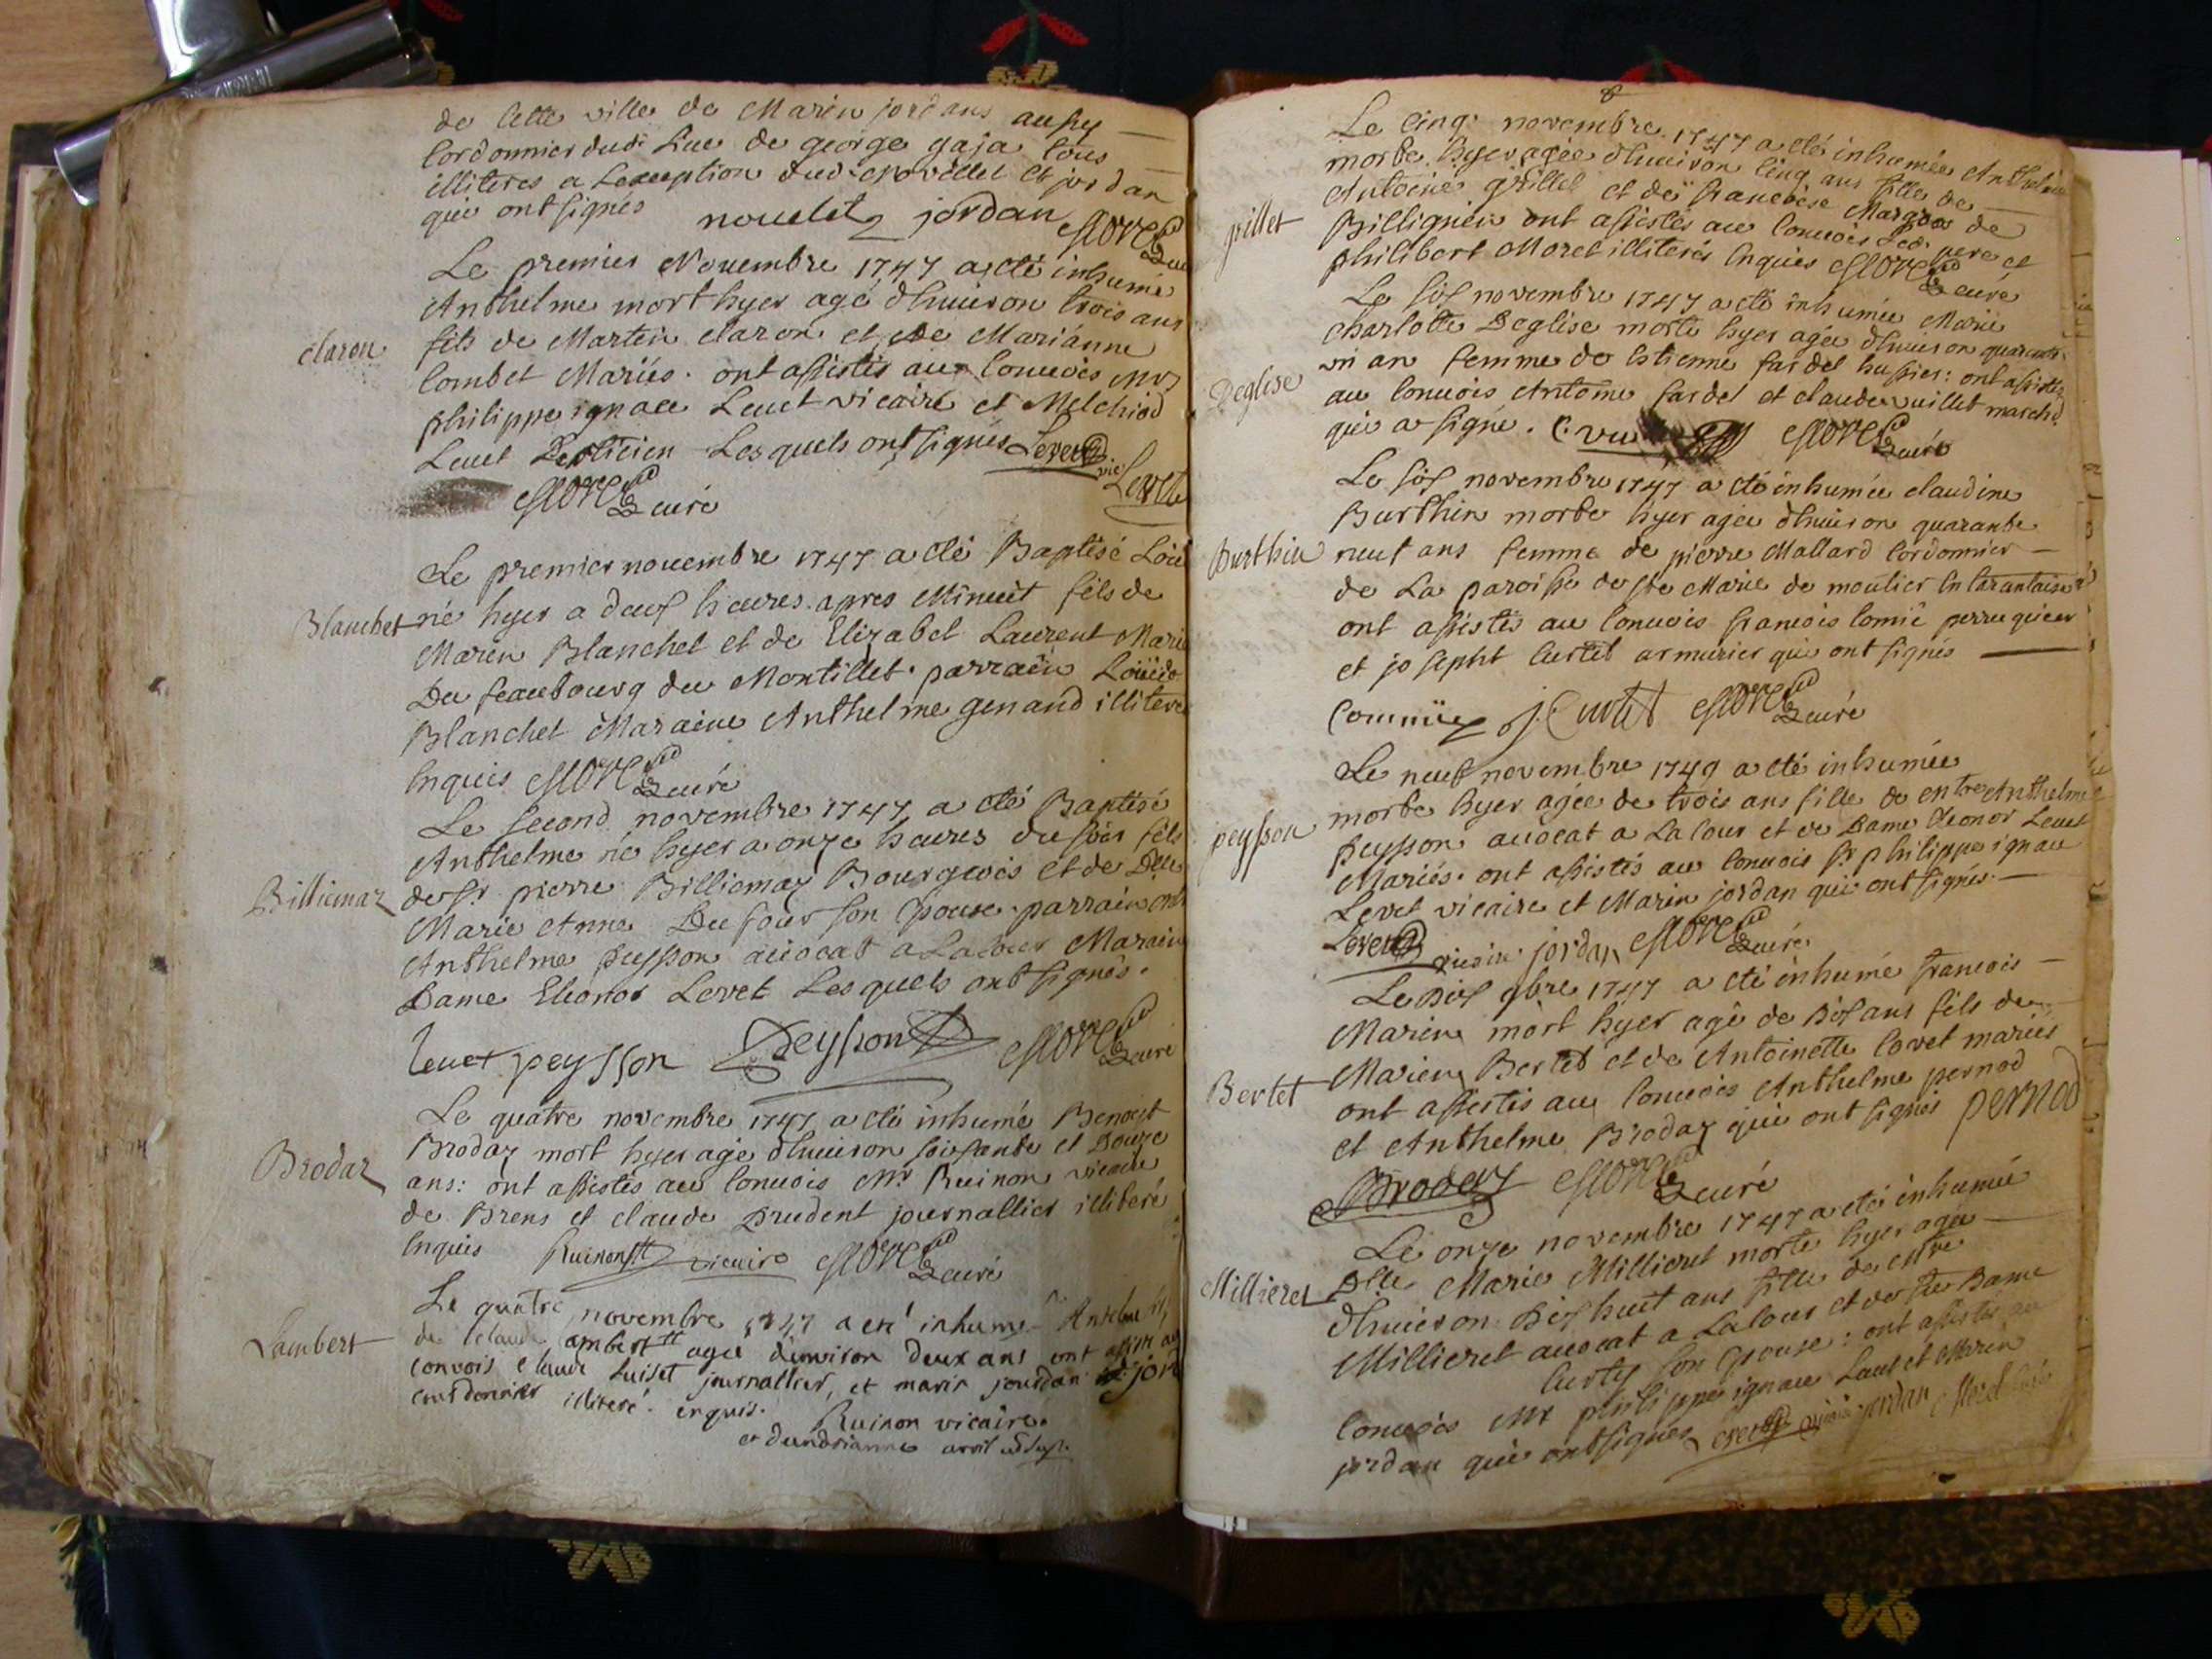 de Cette ville de Marin jordans aussy
Cordonnier dudt Lieu de george gaja tous
illiteres a Lexception dud. novellet et jordan
qui ont signés nouelet jordan Morel
Curé
Le premier Novembre 1747 a eté inhumé
Anthelme mort hyer agé dhuiron trois ans
claron
fils de Martin claron et de Mariánne
Combet Mariés. ont assistés au Convois Mrs
philippe ignace Levet vicaire et Melchiod
Levet Praticien Lesquels ont signés Levet vic.
Levet
Morel Curé
Le premier novembre 1747 a eté Baptisé Loüi
Blanchet
né hyer a deux heures apres Minuit fils de
Marin Blanchet et de Elizabet Laurent Marié
Du feaubourg du Montillet. parrain Loüis
Blanchet Maraine Anthelme genand illitere
Enquis Morel Curé
Le second novembre 1747 a eté Baptisé
Anthelme né hyer a onze heures du soir fils
Billiemaz
de sr. pierre Billiemaz Bourgeois et de Dlle
Marie Anne Dufour son Epouse. parrain
Anthelme peysson avocat a LaCour Maraine
Dame Eleonor Levet Lesquels ont signés.
levet peysson Peysson Morel Curé
Le quatre novembre 1747 a eté inhumé Benoist
Brodaz
Brodaz mort hyer agé dhuiron soissante et Douze
ans: ont assistés au Convois Mr Ruinon vicaire
de Brens et claude Prudent journallier illiteré
Enquis Ruinon vicaire Morel Curé
Le quatre novembre 1747 a eté inhumé Antelme
Lambert
de claude Lambert agé d'environ deux ans ont
convois claude Luiset journallier, et marin jourdan
courdonnier illiteré. enquis.
Ruinon vicaire.
8
Le Cinq. novembre 1747 a eté inhumée Anthelme
morte hyer agée dhuiron Cinq ans fille de
grillet
Antoine grillet et de francoise de
Billignien ont assistés au Convois Led. pere et
philibert Moret illiterés Enquis Morel Curé
Le six novembre 1747 a eté inhumée Marie
charlotte Deglise morte hyer agée dhuiron quarante
Deglise
un an femme de Estienne fardel hussier: ont assistés
au Convois Antoine fardel et claude vuillet marchd.
qui a signé. C. vui Morel Curé
Le six novembre 1747 a eté inhumée claudine
Burthin morte hyer agée dhuiron quarante
Burthin
neuf ans femme de pierre Mallard Cordonnier
de La paroisse de ste Marie de moutier En tarantaise
ont assistés au Convois francois Comié perruquier
et josepht Curtet armurier qui ont signés
J. Curtet Morel Curé
Le neuf novembre 1749 a eté inhumée
morte hyer agée de trois ans fille de entre Anthelme
peysson
peysson avocat a La Cour et de Dame Eleonor Levet
Mariés. ont assistés au Convois sr. philippe ignace
Levet vicaire et Marin jordan qui ont signés.
Levet vicaire jordan Morel Curé
Le Dix 9bre 1747 a eté inhumé francois
Marin mort hyer agé de Dix ans fils de
Bertet
Marien Bertet et de Antoinette Covet mariés
ont assistés au Convois Anthelme pernod
et Anthelme Brodaz qui ont signés pernod
Brodaz Morel Curé
Le onze novembre 1747 a eté inhumée
Millieret
Dlle. Marie Millieret morte hyer agée
dhuiron Dix huit ans fille de
Millieret avocat a LaCour et de Dame
Curty son Epouse: ont assistés au
Convois Mr philippe ignace Levet et Marin
jordan qui ont signés Levet vicaire jordan Morel Curé